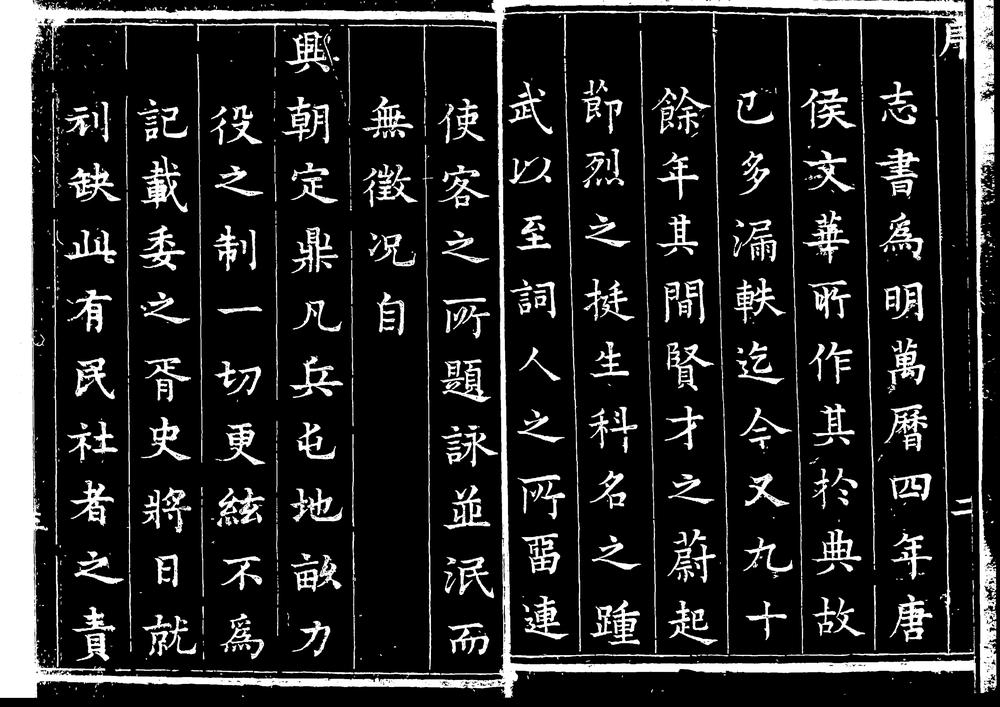 序
二
志書為明萬曆四年唐
侯文華所作其於典故
已多漏軼迄今又九十
餘年其間賢才之蔚起
節烈之挺生科名之踵
武以至詞人之所畱連
使客之所題詠並泯而
無徵况自
興朝定鼎凡兵屯地畝力
役之制一切更絃不為
記載委之胥史將日就
刓缺此有民社者之責